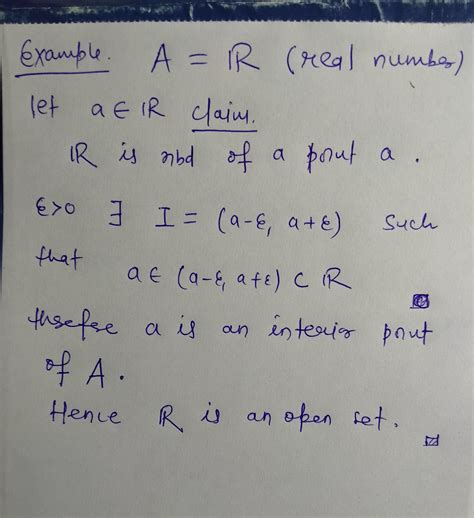 Example. A = ℝ (real number)
let a ∈ ℝ claim.
ℝ is nbd of a point a.
ε>0 ∃ I = (a-ε, a+ε) such
that a ∈ (a-ε, a+ε) ⊂ ℝ
therefore a is an interior point
of A.
Hence ℝ is an open set.